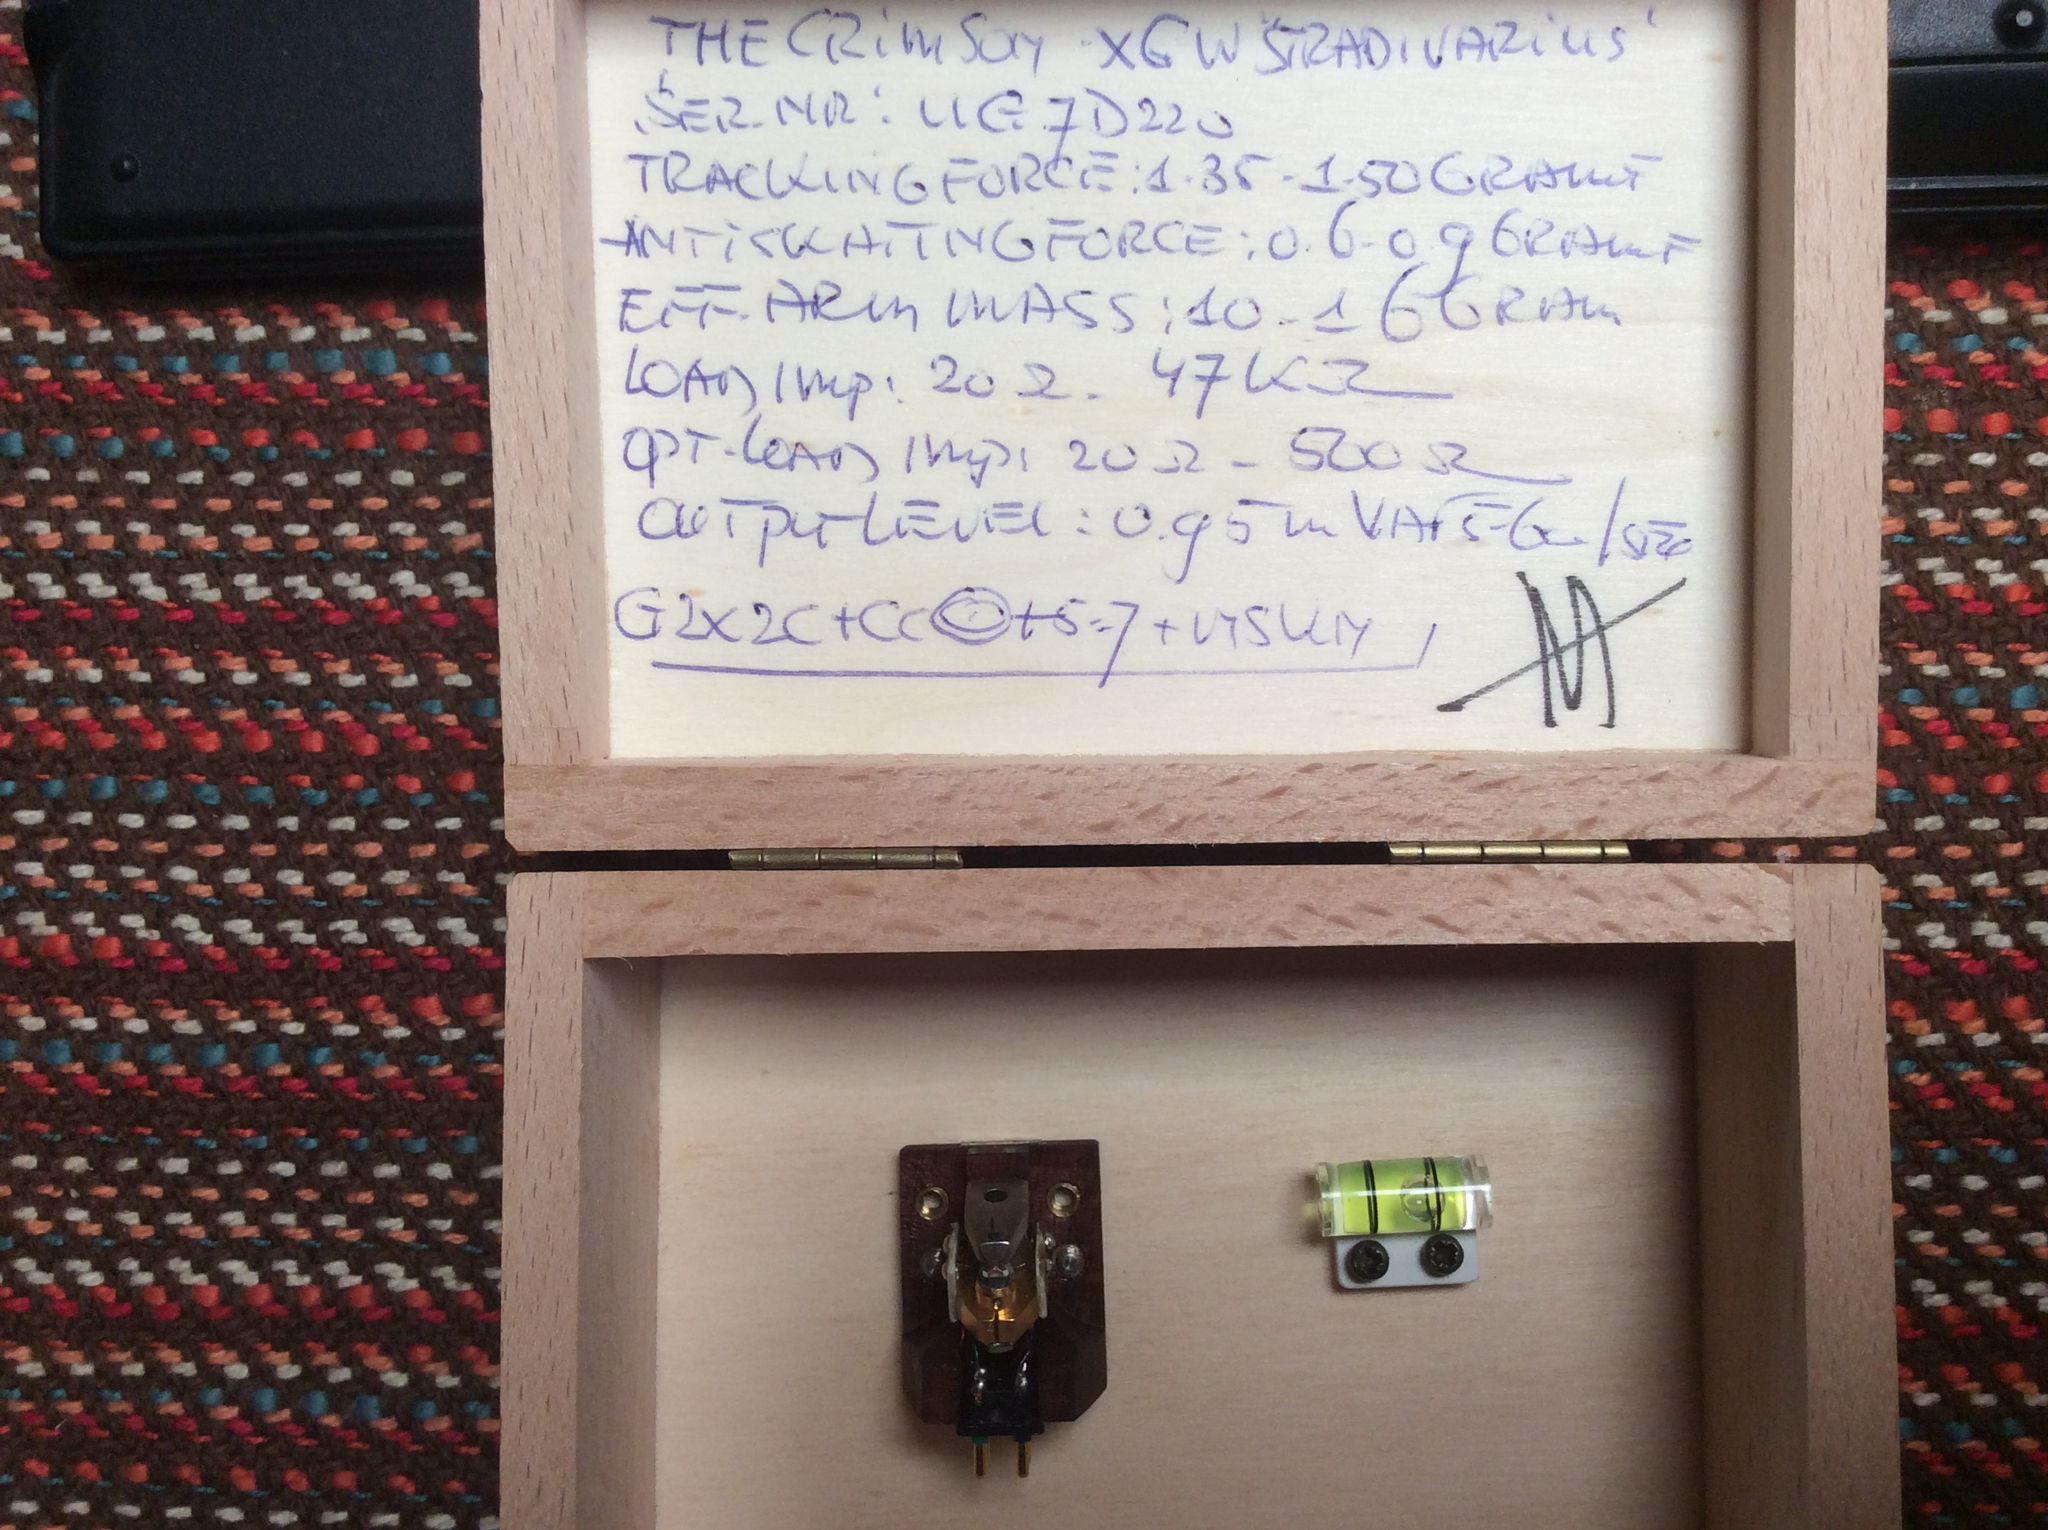 THE CRIMSON XGW 'STRADIVARIUS'
SER. NR: UG7D220
TRACKING FORCE: 1.35-1.50 GRAMF
ANTISKATING FORCE: 0.6-0.9 GRAMF
EFF. ARM MASS: 10-16 GRAM
LOAD IMP: 20Ω - 47KΩ
OPT. LOAD IMP: 20Ω - 500Ω
OUTPUT LEVEL: 0.95mV AT 5.6cm/sec
G2X2C+CC